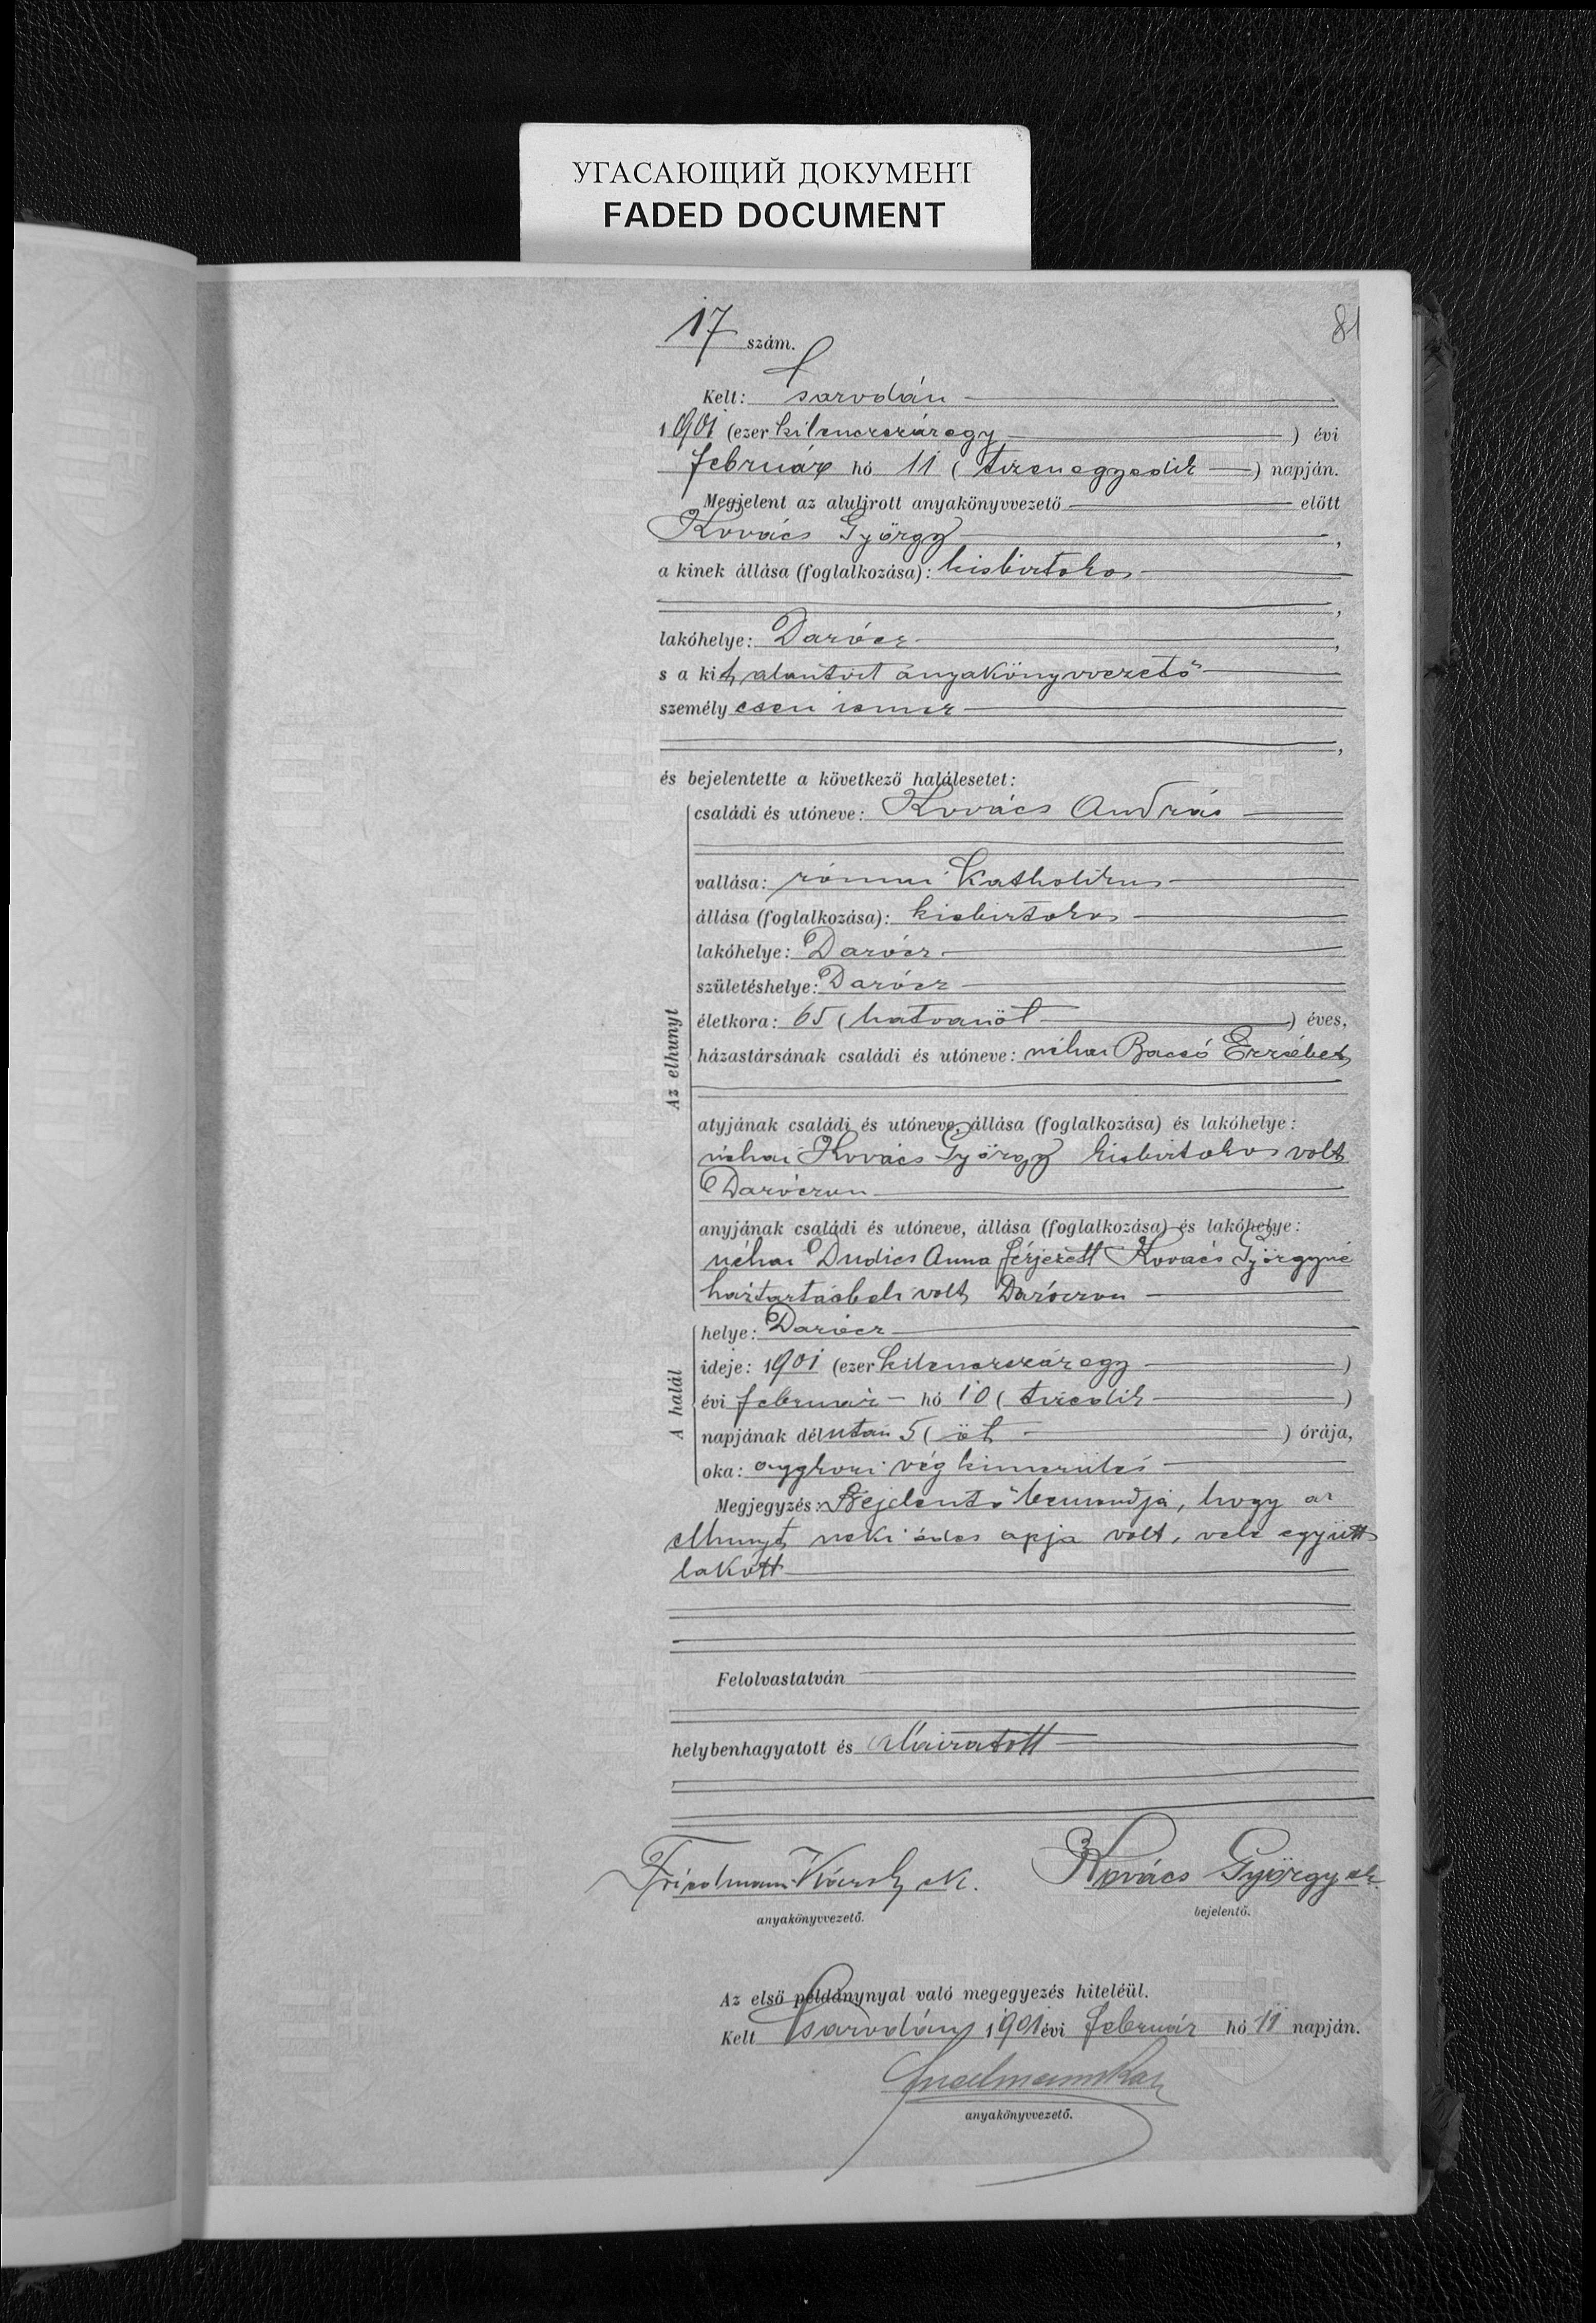 УГАСАЮЩИЙ ДОКУМЕНТ
FADED DOCUMENT
81
17 szám.
Kelt: Csarodán
1901 (ezer kilenczszázegy) évi
február hó 11 (tizenegyedik) napján.
Megjelent az alulirott anyakönyvvezető előtt
Kovács György,
a kinek állása (foglalkozása): kisbirtokos
lakóhelye: Darócz,
s a kit alantirt anyakönyvvezető
személyesen ismer,
és bejelentette a következő halálesetet:
Az elhunyt
családi és utóneve: Kovács András
vallása: római Katholikus
állása (foglalkozása): kisbirtokos
lakóhelye: Darócz
születéshelye: Darócz
életkora: 65 (hatvanöt) éves,
házastársának családi és utóneve: néhai Bacsó Erzsébet
atyjának családi és utóneve, állása (foglalkozása) és lakóhelye:
néhai Kovács György kisbirtokos volt
Daróczon
anyjának családi és utóneve, állása (foglalkozása) és lakóhelye:
néhai Dudics Anna férjezett Kovács Györgyné
háztartásbeli volt Daróczon
A halál
helye: Darócz
ideje: 1901 (ezer kilenczszázegy)
évi február hó 10 (tizedik)
napjának délután 5 (öt) órája,
oka: aggkori végkimerülés
Megjegyzés: Bejelentő bemondja, hogy az
elhunyt neki édes apja volt, vele együtt
lakott
Felolvastatván
helybenhagyatott és aláiratott
Friedmann Károly sk. Kovács György sk.
anyakönyvvezető. bejelentő.
Az első példánynyal való megegyezés hiteléül.
Kelt Csarodán 1901 évi február hó 11 napján.
Friedmann Károly
anyakönyvvezető.